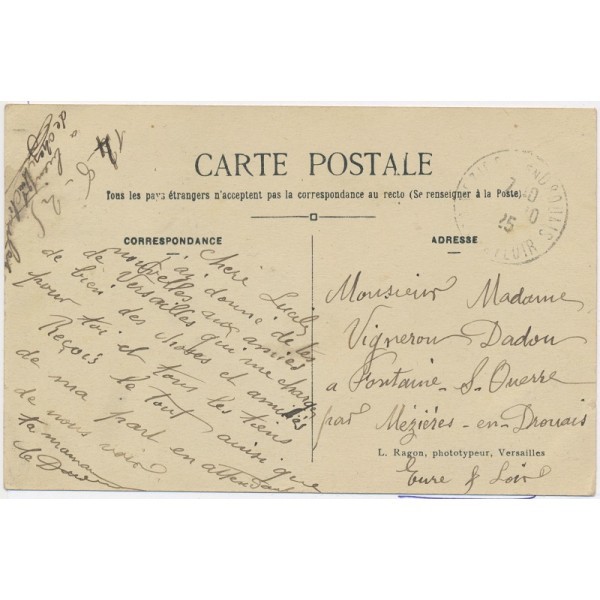 CARTE POSTALE
Tous les pays étrangers n'acceptent pas la correspondance au recto (Se renseigner à la Poste)
CORRESPONDANCE
ADRESSE
14-8-25
Chère Lucile
J'ai donné de tes
nouvelles aux amies
de Versailles qui me charges
de bien des choses et amitiés
pour toi et tous les tiens
Reçois le tout ainsi que
de ma part en attendant
de nous voir
ta maman
Monsieur Madame
Vigneron Dadou
a Fontaine-S-Ouerre
par Mézières-en-Drouais
Eure & Loir
L. Ragon, phototypeur, Versailles
25